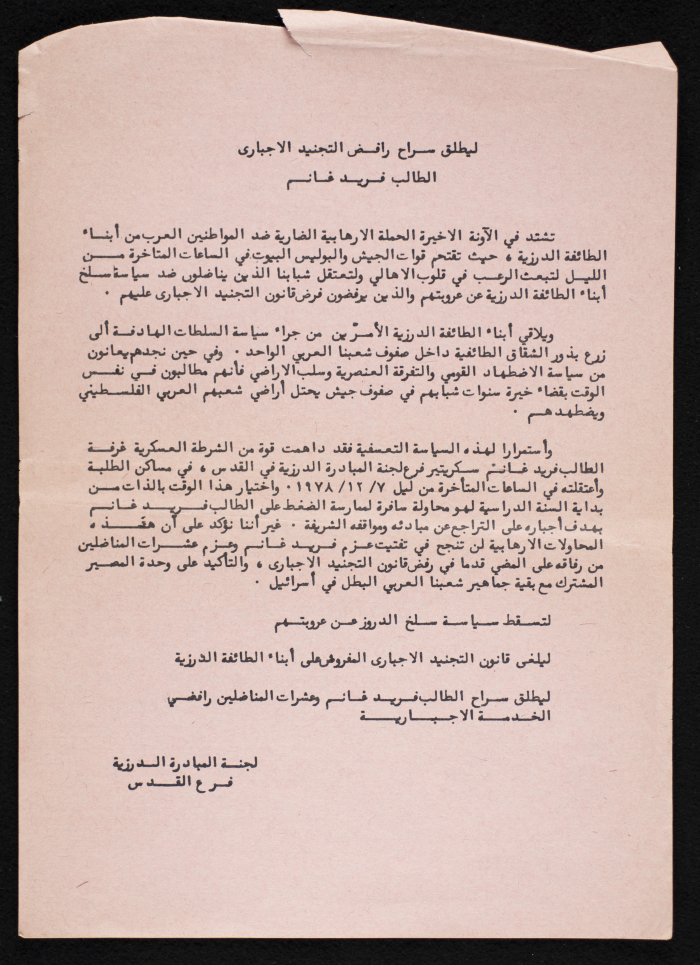 ليطلق سراح رافض التجنيد الاجبارى
الطالب فريد غانم
تشتد في الآونة الاخيرة الحملة الارهابية الضارية ضد المواطنين العرب من أبناء
الطائفة الدرزية ، حيث تقتحم قوات الجيش والبوليس البيوت في الساعات المتاخرة من
الليل لتبعث الرعب في قلوب الاهالي ولتعتقل شبابنا الذين يناضلون ضد سياسة سلخ
أبناء الطائفة الدرزية عن عروبتهم والذين يرفضون فرض قانون التجنيد الاجبارى عليهم .
ويلاقي أبناء الطائفة الدرزية الأمرّين من جراء سياسة السلطات الهادفة ألى
زرع بذور الشقاق الطائفية داخل صفوف شعبنا العربي الواحد . وفي حين نجدهم يعانون
من سياسة الاضطهاد القومي والتفرقة العنصرية وسلب الاراضي فأنهم مطالبون في نفس
الوقت بقضاء خيرة سنوات شبابهم في صفوف جيش يحتل أراضي شعبهم العربي الفلسطيني
ويضطهدهم .
وأستمرارا لهذه السياسة التعسفية فقد داهمت قوة من الشرطة العسكرية غرفة
الطالب فريد غانم سكريتير فرع لجنة المبادرة الدرزية في القدس ، في مساكن الطلبة
وأعتقلته في الساعات المتأخرة من ليل ٧/ ١٢/ ١٩٧٨ . واختيار هذا الوقت بالذات من
بداية السنة الدراسية لهو محاولة سافرة لممارسة الضغط على الطالب فريد غانم
بهدف أجباره على التراجع عن مبادئه ومواقفه الشريفة . غير أننا نؤكد على أن هذه
المحاولات الارهابية لن تنجح في تفتيت عزم فريد غانم وعزم عشرات المناضلين
من رفاقه على المضي قدما في رفض قانون التجنيد الاجبارى ، والتأكيد على وحدة المصير
المشترك مع بقية جماهير شعبنا العربي البطل في أسرائيل .
لتسقط سياسة سلخ الدروز عن عروبتهم
ليلغى قانون التجنيد الاجبارى المفروض على أبناء الطائفة الدرزية
ليطلق سراح الطالب فريد غانم وعشرات المناضلين رافضي
الخدمة الاجبارية
لجنة المبادرة الدرزية
فرع القدس